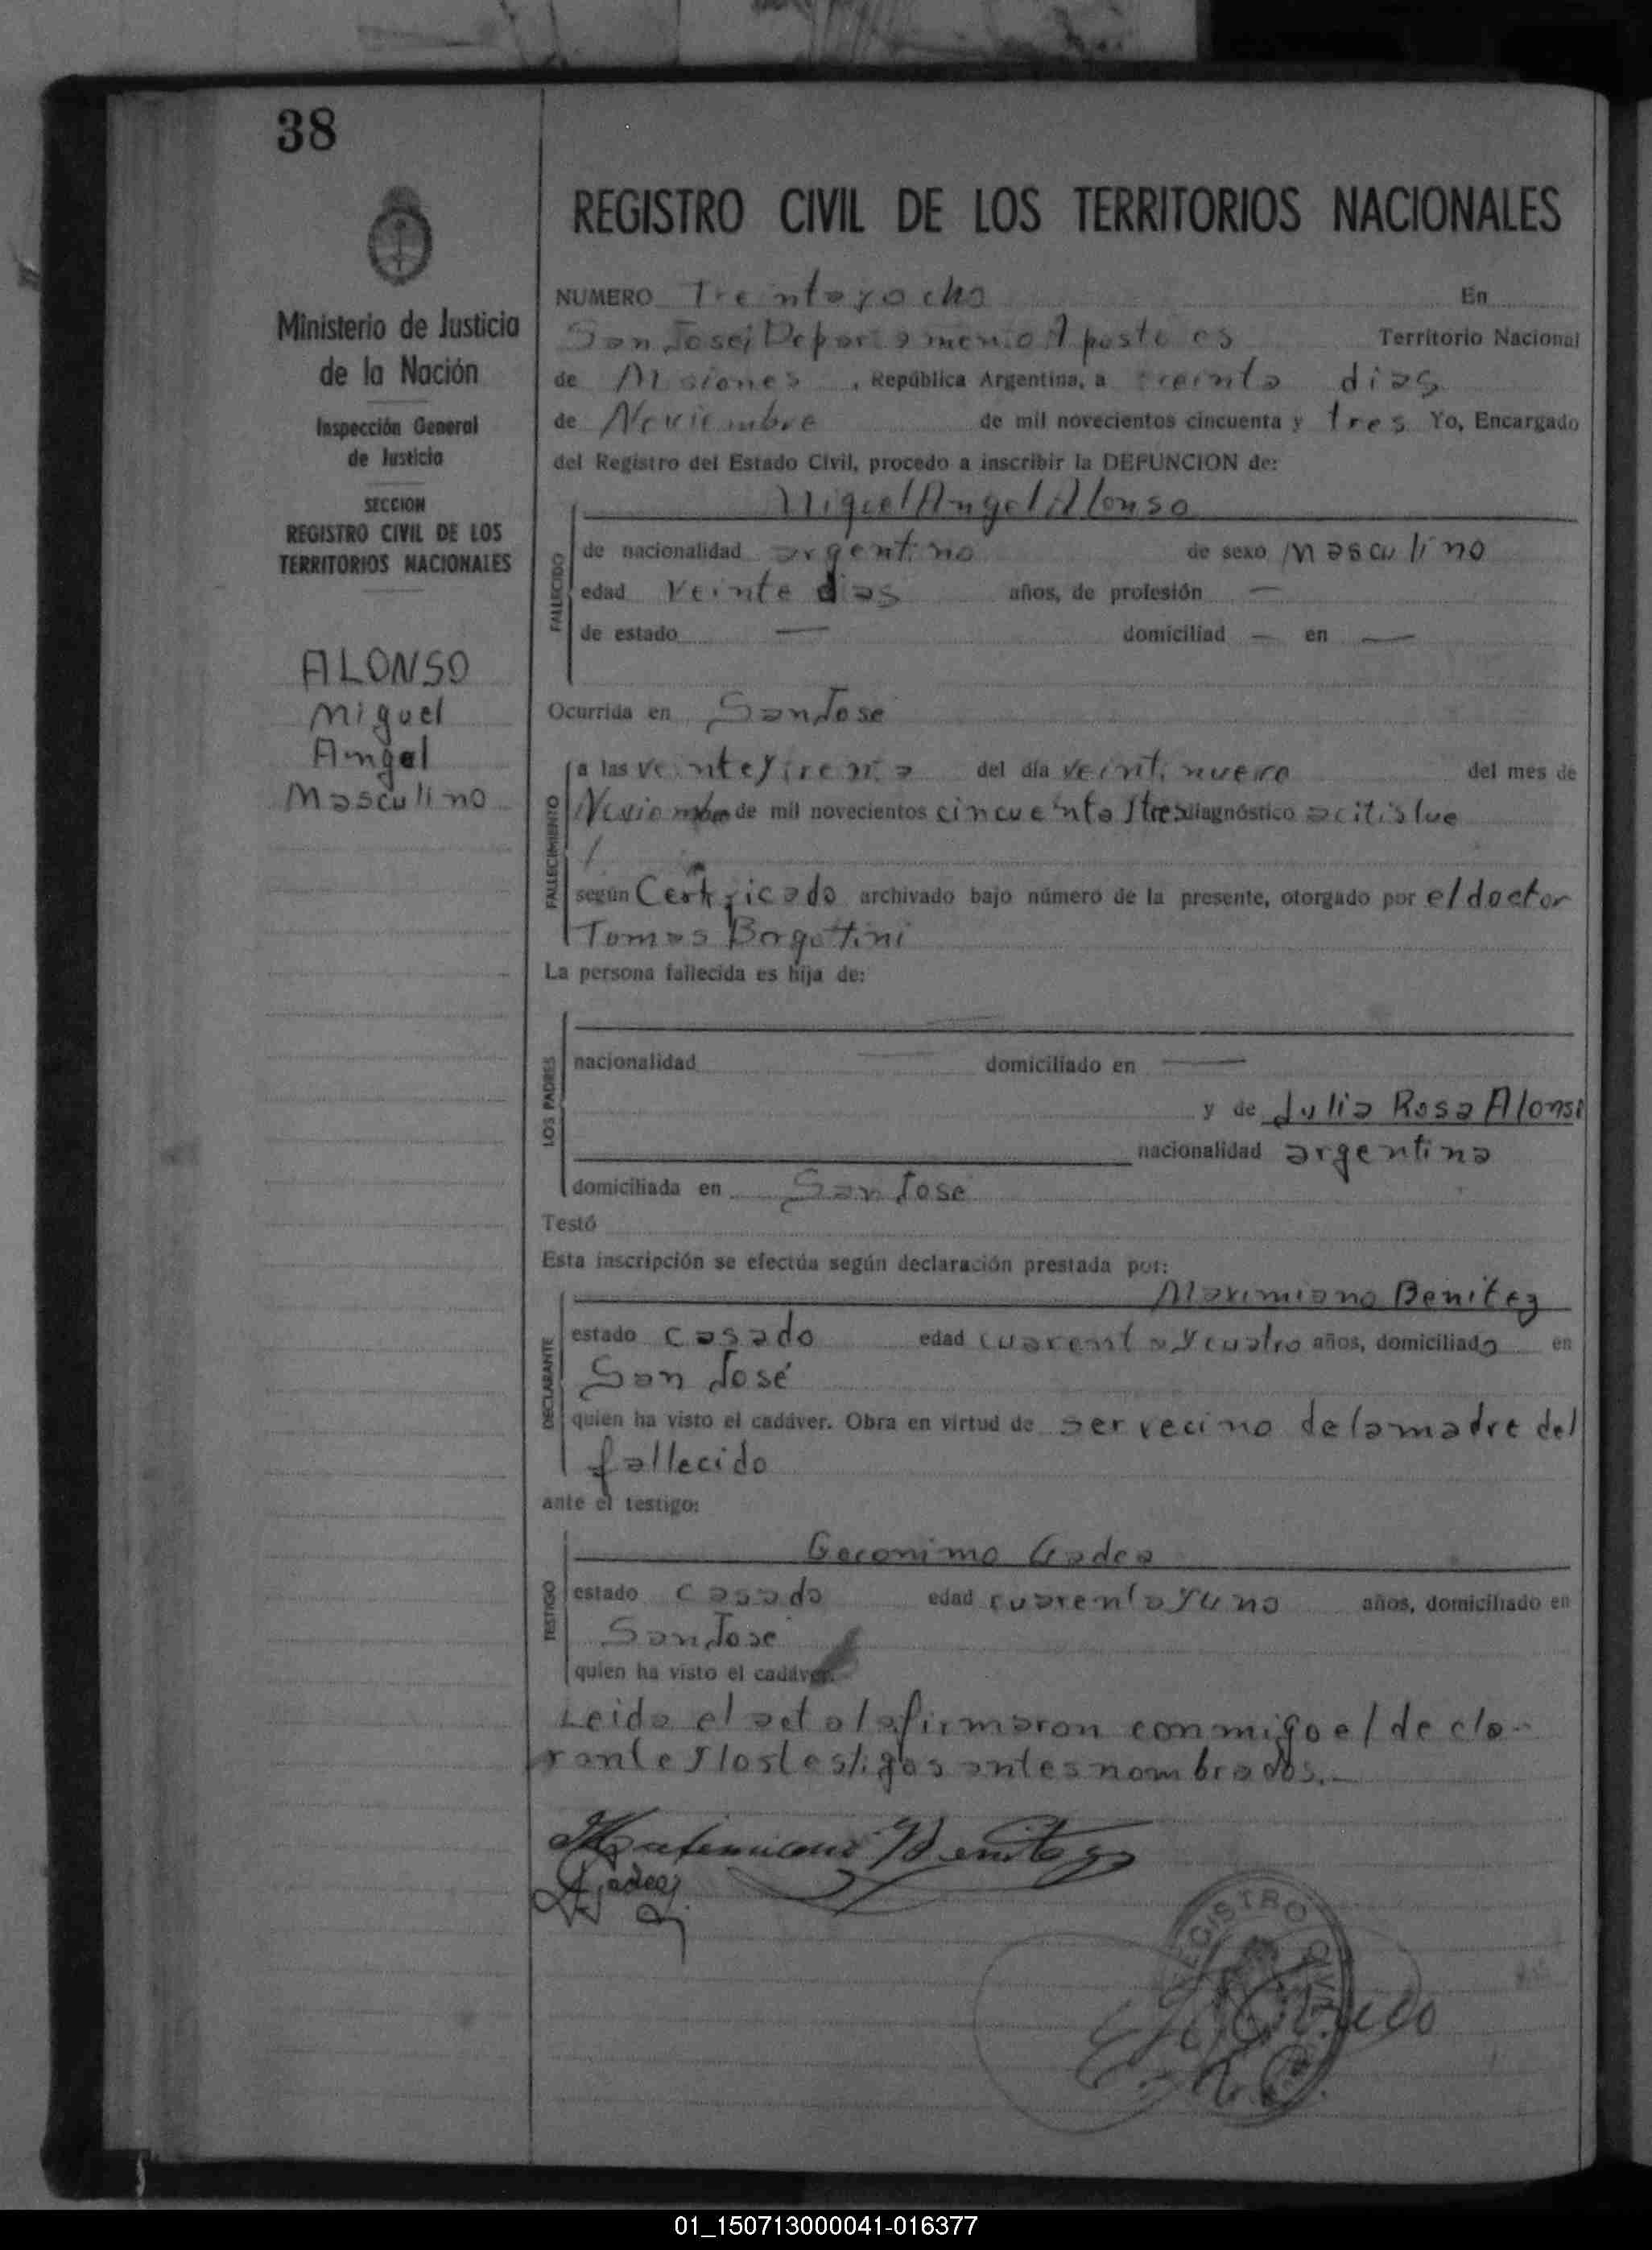 38
REGISTRO CIVIL DE LOS TERRITORIOS NACIONALES
Ministerio de Justicia
de la Nación
Inspección General
de Justicia
SECCION
REGISTRO CIVIL DE LOS
TERRITORIOS NACIONALES
ALONSO
Miguel
Angel
Masculino
NUMERO Treinta y ocho En
San José, Departamento Apostoles Territorio Nacional
de Misiones , República Argentina, a treinta dias
de Noviembre de mil novecientos cincuenta y tres Yo, Encargado
del Registro del Estado Civil, procedo a inscribir la DEFUNCION de:
Miguel Angel Alonso
FALLECIDO
de nacionalidad argentino de sexo masculino
edad veinte dias años, de profesión —
de estado — domiciliad — en —
Ocurrida en San Jose
FALLECIMIENTO
a las veinte y treinta del día veintinueve del mes de
Noviembre de mil novecientos cincuenta y tres diagnóstico
según Certificado archivado bajo número de la presente, otorgado por el doctor
Tomas
La persona fallecida es hija de:
LOS PADRES
nacionalidad — domiciliado en —
y de Julia Rosa Alonso
nacionalidad argentina
domiciliada en San Jose
Testó
Esta inscripción se efectúa según declaración prestada por:
Maximiano Benitez
DECLARANTE
estado casado edad cuarenta y cuatro años, domiciliado en
San José
quien ha visto el cadáver. Obra en virtud de ser vecino de la madre del
fallecido
ante el testigo:
Geronimo Gadea
TESTIGO
estado casado edad cuarenta y uno años, domiciliado en
San Jose
quien ha visto el cadáver.
Leida el acta la firmaron conmigo el decla-
rante y los testigos antes nombrados.—
Maximiano Benitez
Gadea
REGISTRO CIVIL
01_150713000041-016377